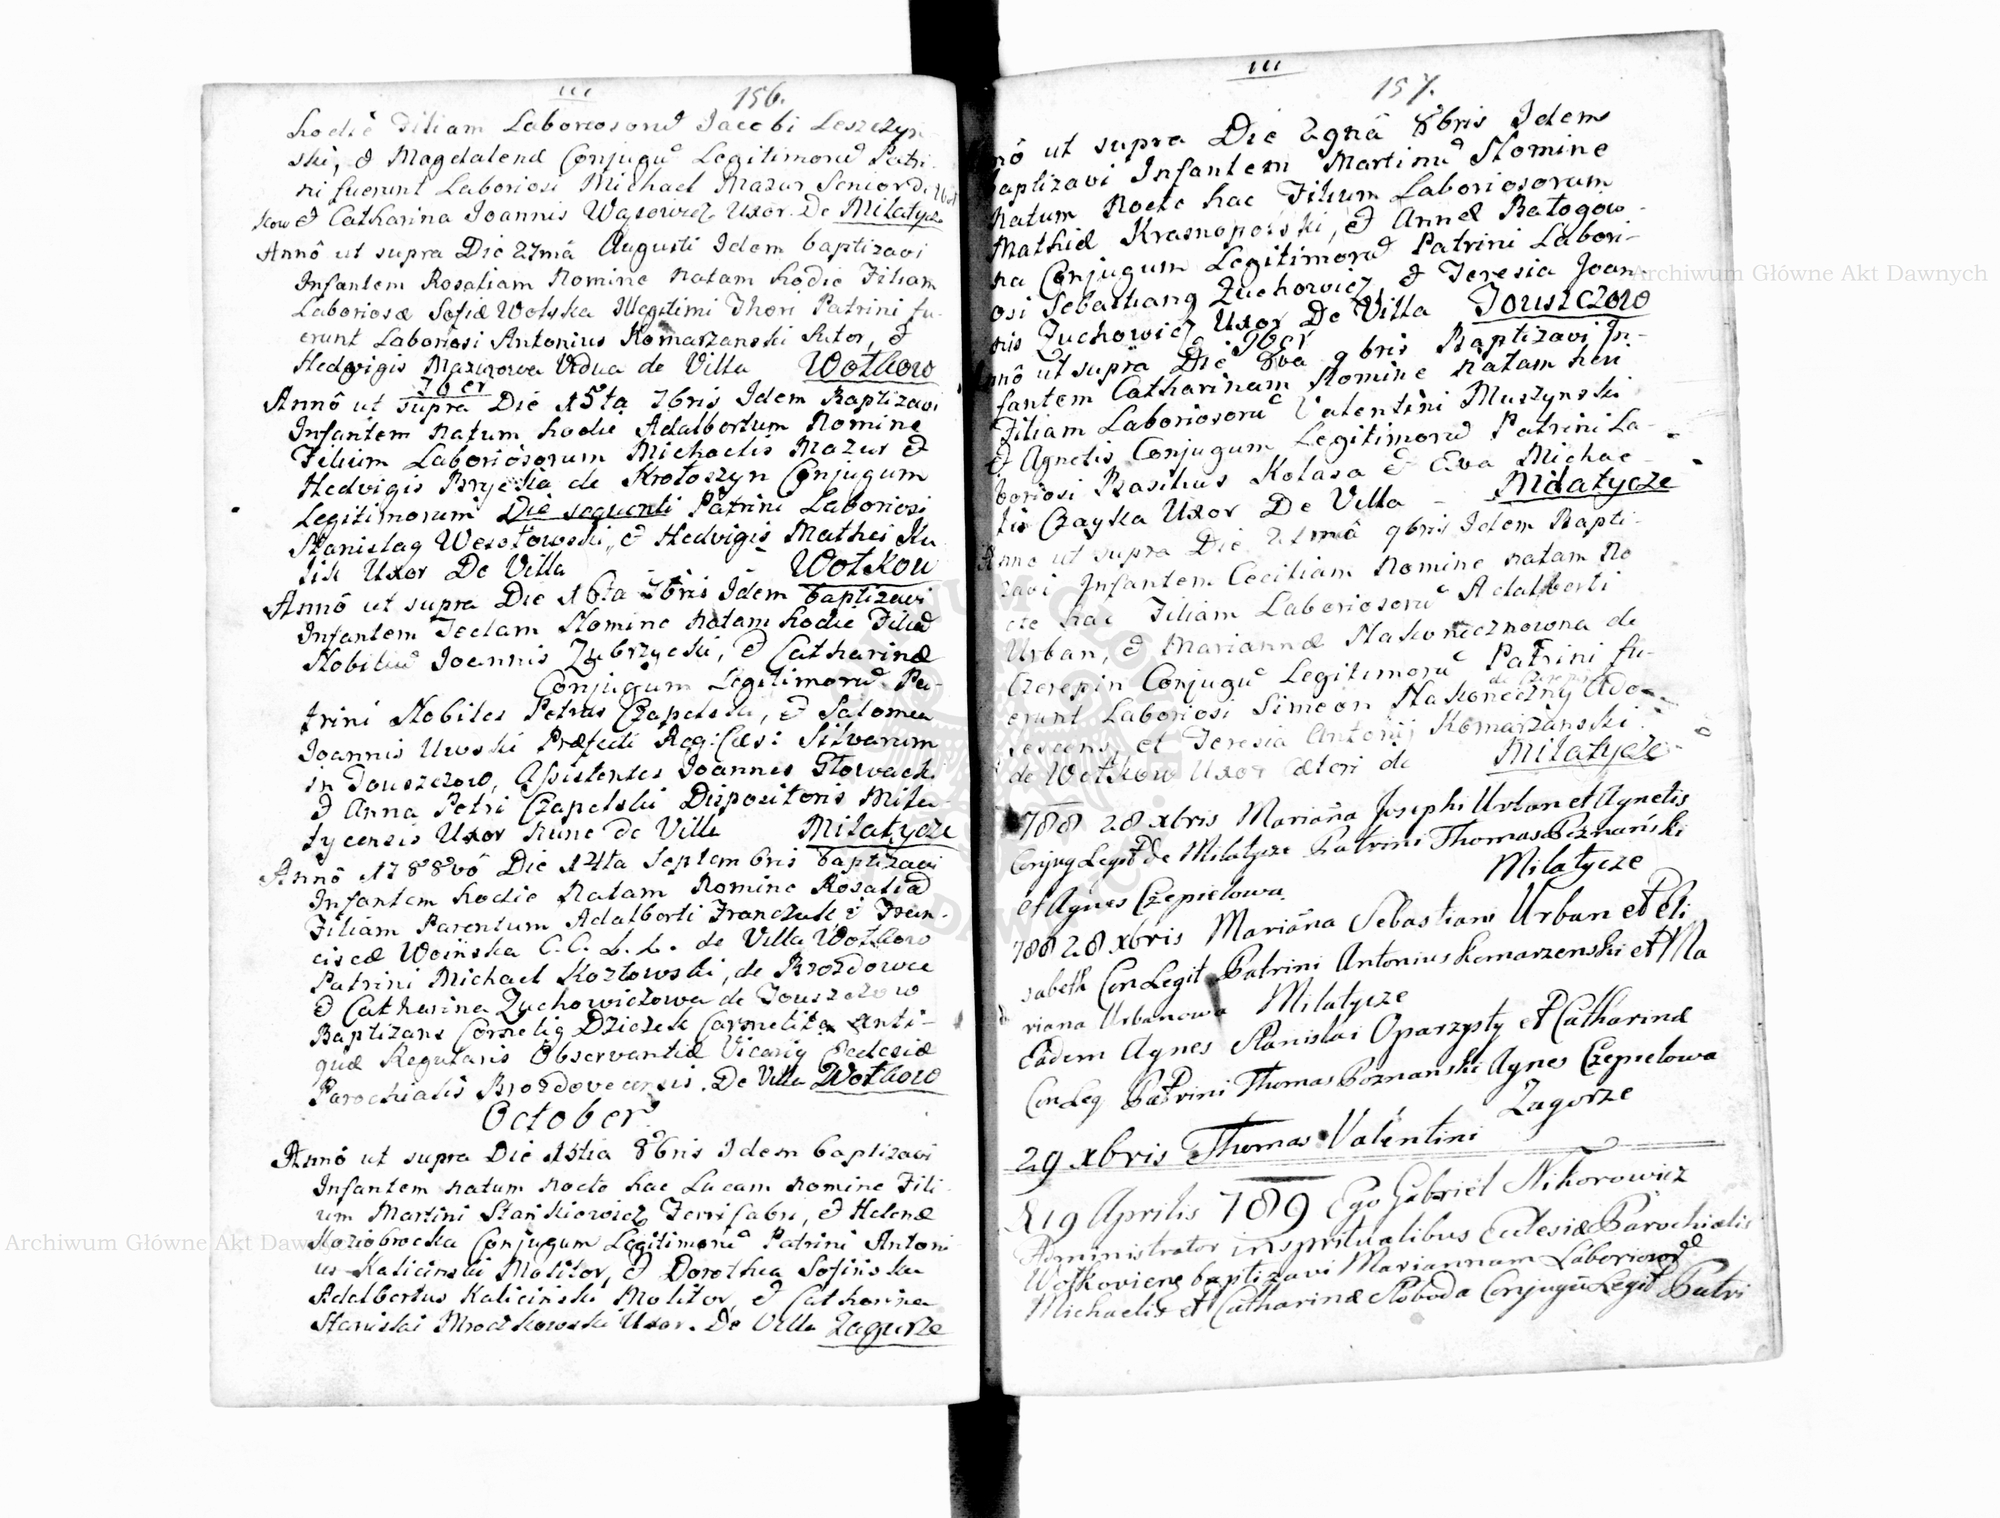 156.
hodiê Filiam Laboriosorũ Jacobi Leszczyn-
ski, & Magdalenæ Conjugũ Legitimorũ Patri-
ni fuerunt Laboriosi Michael Mazur Senior de Wol
kow & Catharina Joannis Wąsowicz Uxor. De Milatycze
Annô ut supra Die 27mâ Augusti Idem baptizavi
Infantem Rosaliam Nomine natam hodie Filiam
Laboriosæ Sofiæ Wolska Illegitimi Thori Patrini fu-
erunt Laboriosi Antonius Komarzanski Sutor, &
Hedvigis Mazurowa Vidua de Villa Wołkow
7ber
Annô ut supra Die 15ta 7bris Idem Baptizavi
Infantem natum hodie Adalbertum Nomine
Filium Laboriosorum Michaelis Mazur &
Hedvigis Bryćka de Krotoszyn Conjugum
Legitimorum Die sequenti Patrini Laboriosi
Stanislaq Wesołowski, & Hedvigis Mathei Ku
lik Uxor De Villa Wołkow
Annô ut supra Die 16ta 7bris Idem baptizavi
Infantem Teclam Nomine natam hodie Filiã
Nobiliũ Joannis Zubrzycki, & Catharinæ
Conjugum Legitimorũ Pa-
trini Nobiles Petrus Czapelski, & Salomea
Joannis Urvski Præfecti Reg: Cæs: Silvarum
in Touszczow, Assistentes Joannes Głowacki
& Anna Petri Czapelski Dispositoris Mila-
tycensis Uxor hunc de Villa Milatycze
Annô 1788vô Die 14ta Septembris baptizavi
Infantem hodie Natam Nomine Rosaliã
Filiam Parentum Adalberti Franczuk & Fran-
ciscæ Woińska C.C. L.L. de Villa Wołkow
Patrini Michael Kozłowski, de Brozdowce
& Catharina Zychowiczowa de Touszczow
Baptizans Corneliq Dziczek Carmelita Anti-
quæ Regularis Observantiæ Vicariq Ecclesiæ
Parochialis Brozdovecensis. De Villa Wołkow
October
Annô ut supra Die 13tia 8bris Idem baptizavi
Infantem natum nocte hac Lucam Nomine Fili-
um Martini Stańkiewicz Ferri fabri, & Helenæ
Koziobrocka Conjugum Legitimorũ Patrini Antoni
us Kalicinski Molitor, & Dorothea Sofińska
Adalbertus Kaliciński Molitor, & Catharina
Stanislai Mroczkowski Uxor. De Villa Zagurze
157.
nô ut supra Die 29nâ 8bris Idem
baptizavi Infantem Martinũ Nomine
natum Nocte hac Filium Laboriosorum
Mathiæ Krasnopolski, & Annæ Batogow-
na Conjugum Legitimorũ Patrini Labori-
osi Sebastianq Zuchowicz, & Teresia Joan-
nis Zuchowicz Uxor De Villa Touszczow
9ber
nnô ut supra Die 8va 9bris Baptizavi In-
fantem Catharinam Nomine natam heri
Filiam Laboriosorũ Valentini Muszynski
& Agnetis Conjugum Legitimorũ Patrini La-
boriosi Basilius Kolasa & Eva Michae-
lis Czayka Uxor De Villa - Milatycze
Anno ut supra Die 21mâ 9bris Idem Bapti-
zavi Infantem Ceciliam Nomine natam No
cte hac Filiam Laboriosorũ Adalberti
Urban, & Mariannæ Nakonecznowna de
Czerepin Conjugũ Legitimorũ Patrini fu-
de Czerepin
erunt Laboriosi Simeon Nakoneczny Ado-
lescens, et Teresia Antonij Komarzanski
de Wołkow Uxor cæteri de Milatycze
788 28 xbris Mariana Josephi Urban et Agnetis
Conjug Legit de Milatycze Patrini Thomas Poznański
et Agnes Czepielowa. Milatycze
788 28 xbris Mariana Sebastiani Urban et Eli
sabeth Con Legit Patrini Antonius Komarzenski et Ma
riana Urbanowa Milatycze
Eadem Agnes Stanislai Oparzysty et Catharinæ
Con Leg Patrini Thomas Poznanski Agnes Czepielowa
Zagorze
29 xbris Thomas Valentini
19 Aprilis 789 Ego Gabriel Nikorowicz
Administrator in spiritualibus Ecclesiæ Parochialis
Wołkovienq baptizavi Mariannam Laboriosorũ
Michaelis et Catharinæ Słoboda Conjugũ Legit Patri
Archiwum Główne Akt Dawnych
Archiwum Główne Akt Dawnych